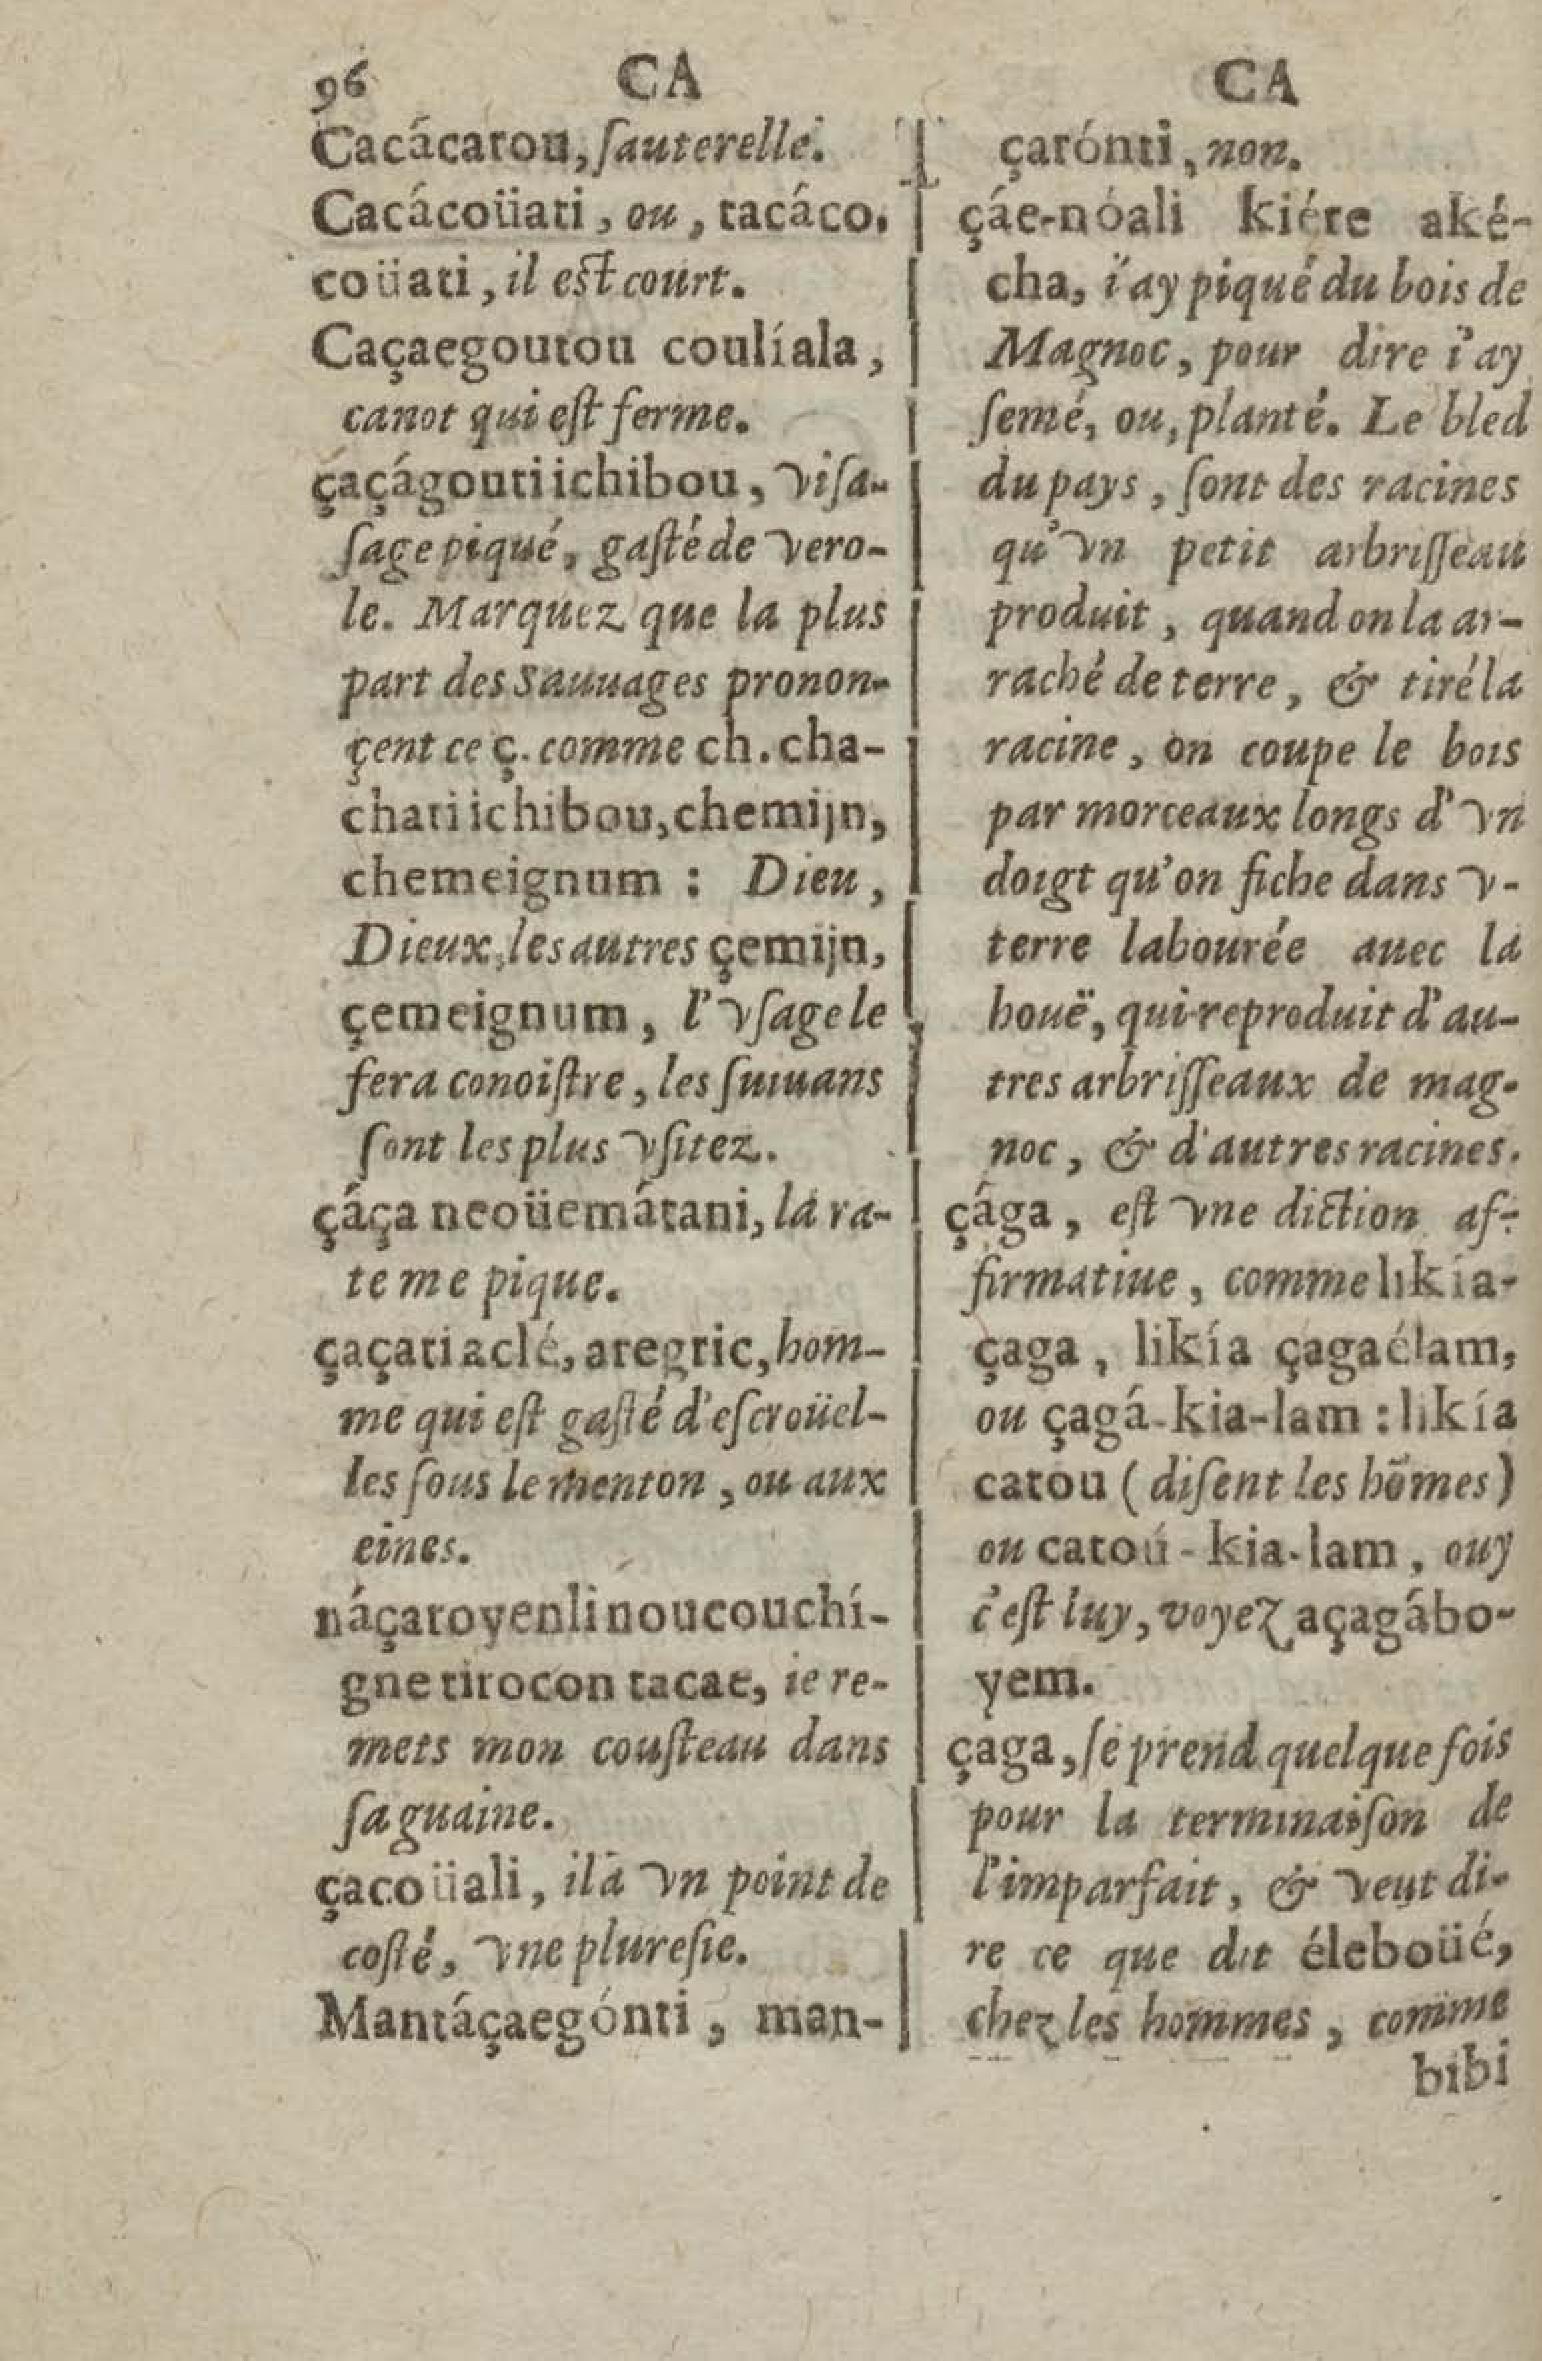 96 CA CA
Cacácatou, ſauterelle.
Cacácoüati, ou, tacáco.
coüati, il eſt court.
Caçaegoutou coulíala,
canot qui eſt ferme.
çaçágoutiichibou, viſa-
ſage piqué, gaſté de vero-
le. Marquez que la plus
part des Sauuages pronon-
çent ce ç. comme ch. cha-
chatiichibou, chemijn,
chemeignum : Dieu,
Dieux, les autres çemijn,
çemeignum, l'vſage le
fera conoiſtre, les ſuiuans
ſont les plus vſitez.
çáça neoüemátani, la ra-
te me pique.
çaçatiaclé, aregric, hom-
me qui eſt gaſté d'eſcroüel-
les ſous le menton, ou aux
eines.
náçaroyenlinoucouchí-
gne tirocon tacae, ie re-
mets mon couſteau dans
ſa guaine.
çacoüali, il a vn point de
coſté, vne plureſie.
Mantáçaegónti, man-
çatónti, non.
çáe-nóali kiére aké-
cha, i'ay piqué du bois de
Magnoc, pour dire i'ay
ſemé, ou, planté. Le bled
du pays, ſont des racines
qu'vn petit arbriſſeau
produit, quand on la ar-
raché de terre, & tiré la
racine, on coupe le bois
par morceaux longs d'vn
doigt qu'on fiche dans v-
terre labourée auec la
houë, qui reproduit d'au-
tres arbriſſeaux de mag-
noc, & d'autres racines.
çága, eſt vne diction af-
firmatiue, comme likía-
çaga, likía çagaélam,
ou çagá-kia-lam : likía
catou (diſent les hõmes)
ou catoú-kia-lam, ouy
c'eſt luy, voyez açagábo-
yem.
çaga, ſe prend quelque fois
pour la terminaiſon de
l'imparfait, & veut di-
re ce que dit éleboüé,
chez les hommes, comme
bibi